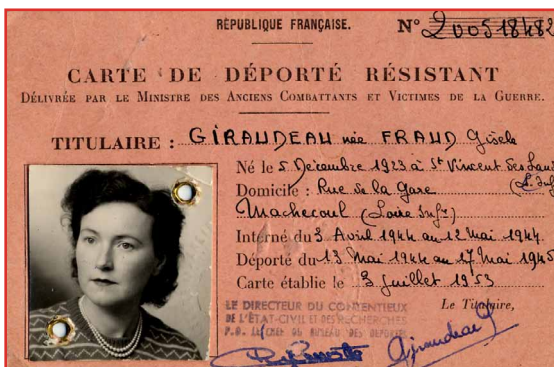 RÉPUBLIQUE FRANÇAISE. N° 2005 18482
CARTE DE DÉPORTÉ RÉSISTANT
DÉLIVRÉE PAR LE MINISTRE DES ANCIENS COMBATTANTS ET VICTIMES DE LA GUERRE.
TITULAIRE : GIRAUDEAU née FRAUD Gisèle
Né le 5 Décembre 1923 à St Vincent
Domicile : Rue de la Gare (L. Infre)
Machecoul (Loire Infre)
Interné du 3 Avril 1944 au 12 Mai 1944.
Déporté du 13 Mai 1944 au 17 Mai 1945
Carte établie le 3 Juillet 1953
LE DIRECTEUR DU CONTENTIEUX Le Titulaire,
DE L'ÉTAT-CIVIL ET DES RECHERCHES
P.O. LE CHEF DU BUREAU DES DÉPORTÉS
Giraudeau